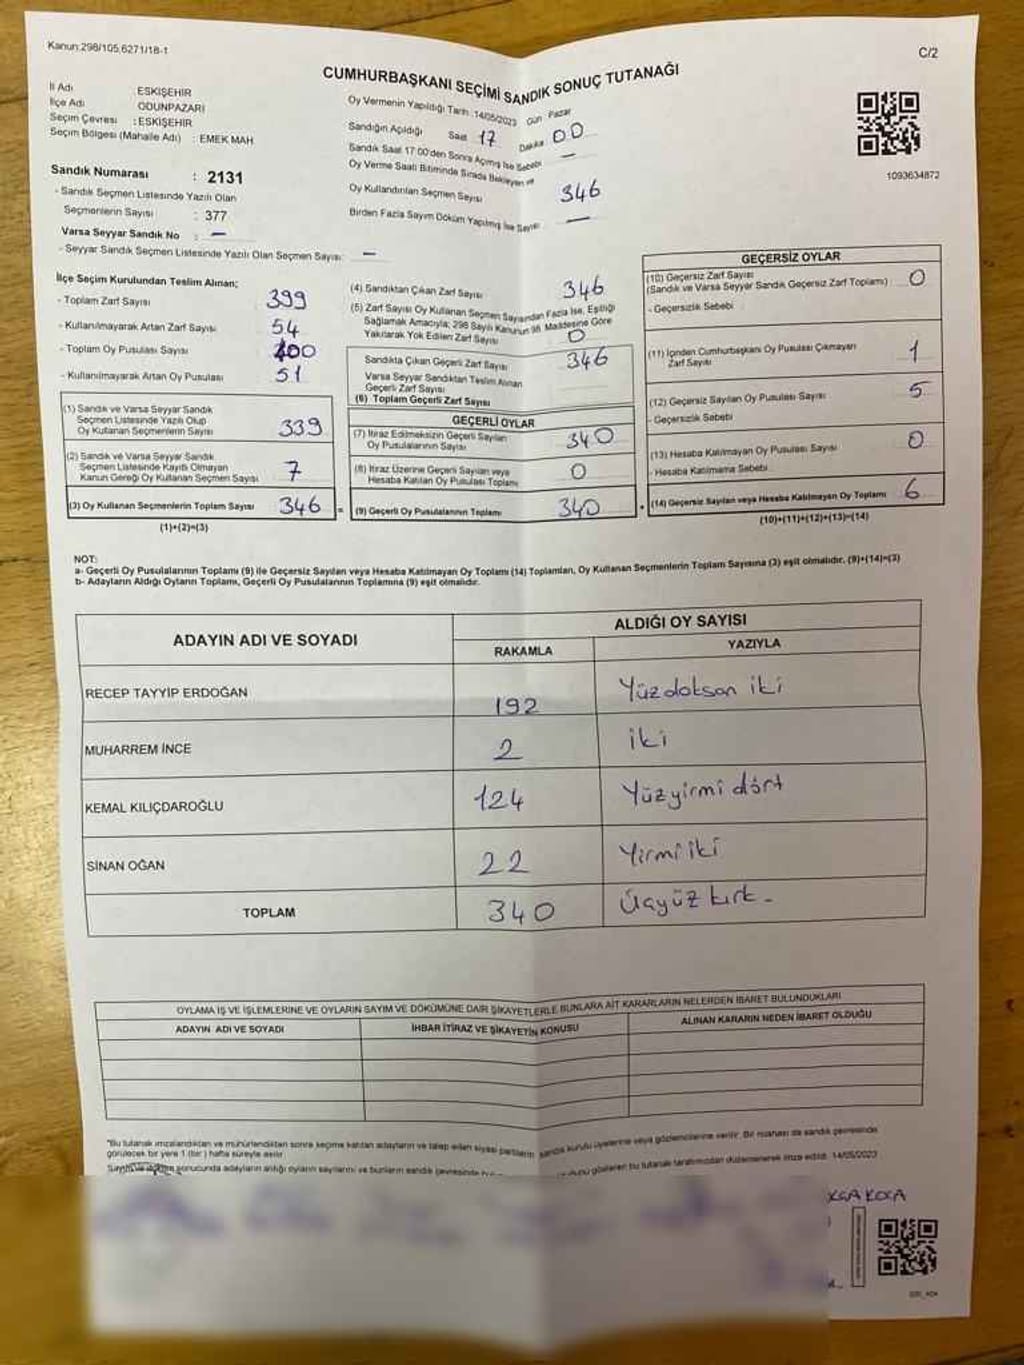 Kanun:298/105,6271/18-1
C/2
CUMHURBAŞKANI SEÇİMİ SANDIK SONUÇ TUTANAĞI
İl Adı : ESKİŞEHİR
İlçe Adı : ODUNPAZARI
Seçim Çevresi : ESKİŞEHİR
Seçim Bölgesi (Mahalle Adı) : EMEK MAH
Sandık Numarası : 2131
- Sandık Seçmen Listesinde Yazılı Olan
Seçmenlerin Sayısı : 377
Varsa Seyyar Sandık No : –
- Seyyar Sandık Seçmen Listesinde Yazılı Olan Seçmen Sayısı: –
Oy Vermenin Yapıldığı Tarih :14/05/2023 Gün Pazar
Sandığın Açıldığı Saat 17 Dakika 00
Sandık Saat 17:00'den Sonra Açılmış İse Sebebi –
Oy Verme Saati Bitiminde Sırada Bekleyen ve
Oy Kullandırılan Seçmen Sayısı 346
Birden Fazla Sayım Döküm Yapılmış İse Sayısı –
1093634872
İlçe Seçim Kurulundan Teslim Alınan;
- Toplam Zarf Sayısı 399
- Kullanılmayarak Artan Zarf Sayısı 54
- Toplam Oy Pusulası Sayısı 400
- Kullanılmayarak Artan Oy Pusulası 51
(1) Sandık ve Varsa Seyyar Sandık
Seçmen Listesinde Yazılı Olup
Oy Kullanan Seçmenlerin Sayısı 339
(2) Sandık ve Varsa Seyyar Sandık
Seçmen Listesinde Kayıtlı Olmayan
Kanun Gereği Oy Kullanan Seçmen Sayısı 7
(3) Oy Kullanan Seçmenlerin Toplam Sayısı 346 =
(1)+(2)=(3)
(4) Sandıktan Çıkan Zarf Sayısı 346
(5) Zarf Sayısı Oy Kullanan Seçmen Sayısından Fazla İse, Eşitliği
Sağlamak Amacıyla; 298 Sayılı Kanunun 98. Maddesine Göre
Yakılarak Yok Edilen Zarf Sayısı 0
Sandıkta Çıkan Geçerli Zarf Sayısı 346
Varsa Seyyar Sandıktan Teslim Alınan
Geçerli Zarf Sayısı
(6) Toplam Geçerli Zarf Sayısı
GEÇERLİ OYLAR
(7) İtiraz Edilmeksizin Geçerli Sayılan
Oy Pusulalarının Sayısı 340
(8) İtiraz Üzerine Geçerli Sayılan veya
Hesaba Katılan Oy Pusulası Toplamı 0
(9) Geçerli Oy Pusulalarının Toplamı 340 +
GEÇERSİZ OYLAR
(10) Geçersiz Zarf Sayısı
(Sandık ve Varsa Seyyar Sandık Geçersiz Zarf Toplamı) 0
- Geçersizlik Sebebi
(11) İçinden Cumhurbaşkanı Oy Pusulası Çıkmayan
Zarf Sayısı 1
(12) Geçersiz Sayılan Oy Pusulası Sayısı 5
- Geçersizlik Sebebi
(13) Hesaba Katılmayan Oy Pusulası Sayısı 0
- Hesaba Katılmama Sebebi
(14) Geçersiz Sayılan veya Hesaba Katılmayan Oy Toplamı 6
(10)+(11)+(12)+(13)=(14)
NOT:
a- Geçerli Oy Pusulalarının Toplamı (9) ile Geçersiz Sayılan veya Hesaba Katılmayan Oy Toplamı (14) Toplamları, Oy Kullanan Seçmenlerin Toplam Sayısına (3) eşit olmalıdır. (9)+(14)=(3)
b- Adayların Aldığı Oyların Toplamı, Geçerli Oy Pusulalarının Toplamına (9) eşit olmalıdır.
ADAYIN ADI VE SOYADI
ALDIĞI OY SAYISI
RAKAMLA YAZIYLA
RECEP TAYYİP ERDOĞAN 192 Yüzdoksan iki
MUHARREM İNCE 2 iki
KEMAL KILIÇDAROĞLU 124 Yüzyirmi dört
SİNAN OĞAN 22 Yirmi iki
TOPLAM 340 Üçyüz kırk -
OYLAMA İŞ VE İŞLEMLERİNE VE OYLARIN SAYIM VE DÖKÜMÜNE DAİR ŞİKAYETLERLE BUNLARA AİT KARARLARIN NELERDEN İBARET BULUNDUKLARI
ADAYIN ADI VE SOYADI İHBAR İTİRAZ VE ŞİKAYETİN KONUSU ALINAN KARARIN NEDEN İBARET OLDUĞU
*Bu tutanak imzalandıktan ve mühürlendikten sonra seçime katılan adayların ve talep eden siyasi partilerin sandık kurulu üyelerine veya gözlemcilerine verilir. Bir nüshası da sandık çevresinde
görülecek bir yere 1 (bir) hafta süreyle asılır.
sonucunda adayların aldığı oyların sayılarını ve bunların sandık çevresinde gösteren bu tutanak tarafımızdan düzenlenerek imza edildi. 14/05/2023
KOCA